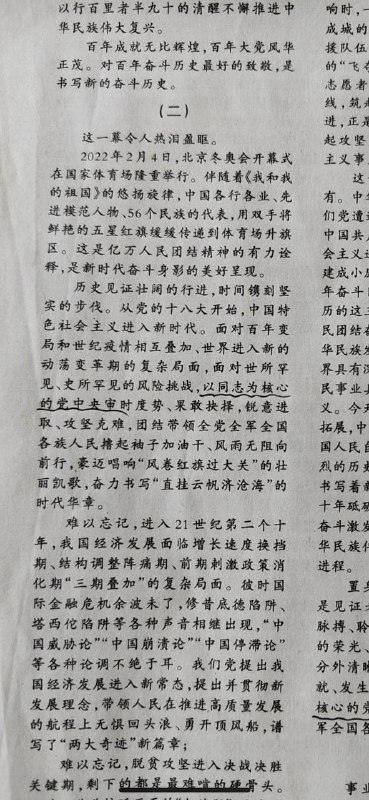 以行百里者半九十的清醒不懈推进中
华民族伟大复兴。
百年成就无比辉煌，百年大党风华
正茂。对百年奋斗历史最好的致敬，是
书写新的奋斗历史。
(二)
这一幕令人热泪盈眶。
2022年2月4日，北京冬奥会开幕式
在国家体育场隆重举行。伴随着《我和我
的祖国》的悠扬旋律，中国各行各业、先
进模范人物、56个民族的代表，用双手将
鲜艳的五星红旗缓缓传递到体育场升旗
区。这是亿万人民团结精神的有力诠
释，是新时代奋斗身影的美好呈现。
历史见证壮阔的行进，时间镌刻坚
实的步伐。从党的十八大开始，中国特
色社会主义进入新时代。面对百年变
局和世纪疫情相互叠加、世界进入新的
动荡变革期的复杂局面，面对世所罕
见、史所罕见的风险挑战，以同志为核心
的党中央审时度势、果敢抉择，锐意进
取、攻坚克难，团结带领全党全军全国
各族人民撸起袖子加油干、风雨无阻向
前行，豪迈唱响“风卷红旗过大关”的壮
丽凯歌，奋力书写“直挂云帆济沧海”的
时代华章。
难以忘记，进入21世纪第二个十
年，我国经济发展面临增长速度换挡
期、结构调整阵痛期、前期刺激政策消
化期“三期叠加”的复杂局面。彼时国
际金融危机余波未了，修昔底德陷阱、
塔西佗陷阱等各种声音相继出现，“中
国威胁论”“中国崩溃论”“中国停滞论”
等各种论调不绝于耳。我们党提出我
国经济发展进入新常态，提出并贯彻新
发展理念，带领人民在推进高质量发展
的航程上无惧回头浪、勇开顶风船，谱
写了“两大奇迹”新篇章；
难以忘记，脱贫攻坚进入决战决胜
关键期，剩下的都是最难啃的硬骨头。
响时，一
成城的
援队伍
的“飞
志愿者
线，筑
进，正是
起攻坚
主义事
这
有。中
们党遭
中国共
会主义
建成小
年奋斗
历的这三
民团结
华民族
界具有深
民事业
义。今天
拓展，中
国人民自
烈的历史
书写着新
十年砥砺
奋斗激发
华民族伟
进程。
置身
是见证
脉搏、聆
的荣光、
分外清晰
就、发生
核心的党
军全国各
事业